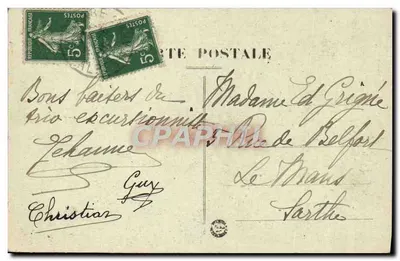 POSTES
5c
POSTES
5c
CARTE POSTALE
Bons baisers du
trio excursionnist.
Jehanne
Guy
Christian
Madame Ed Grignée
5 Rue de Belfort
Le Mans
Sarthe
CPARAMA